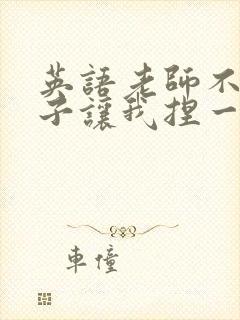 英語老師不
子讓我捏一
車憧